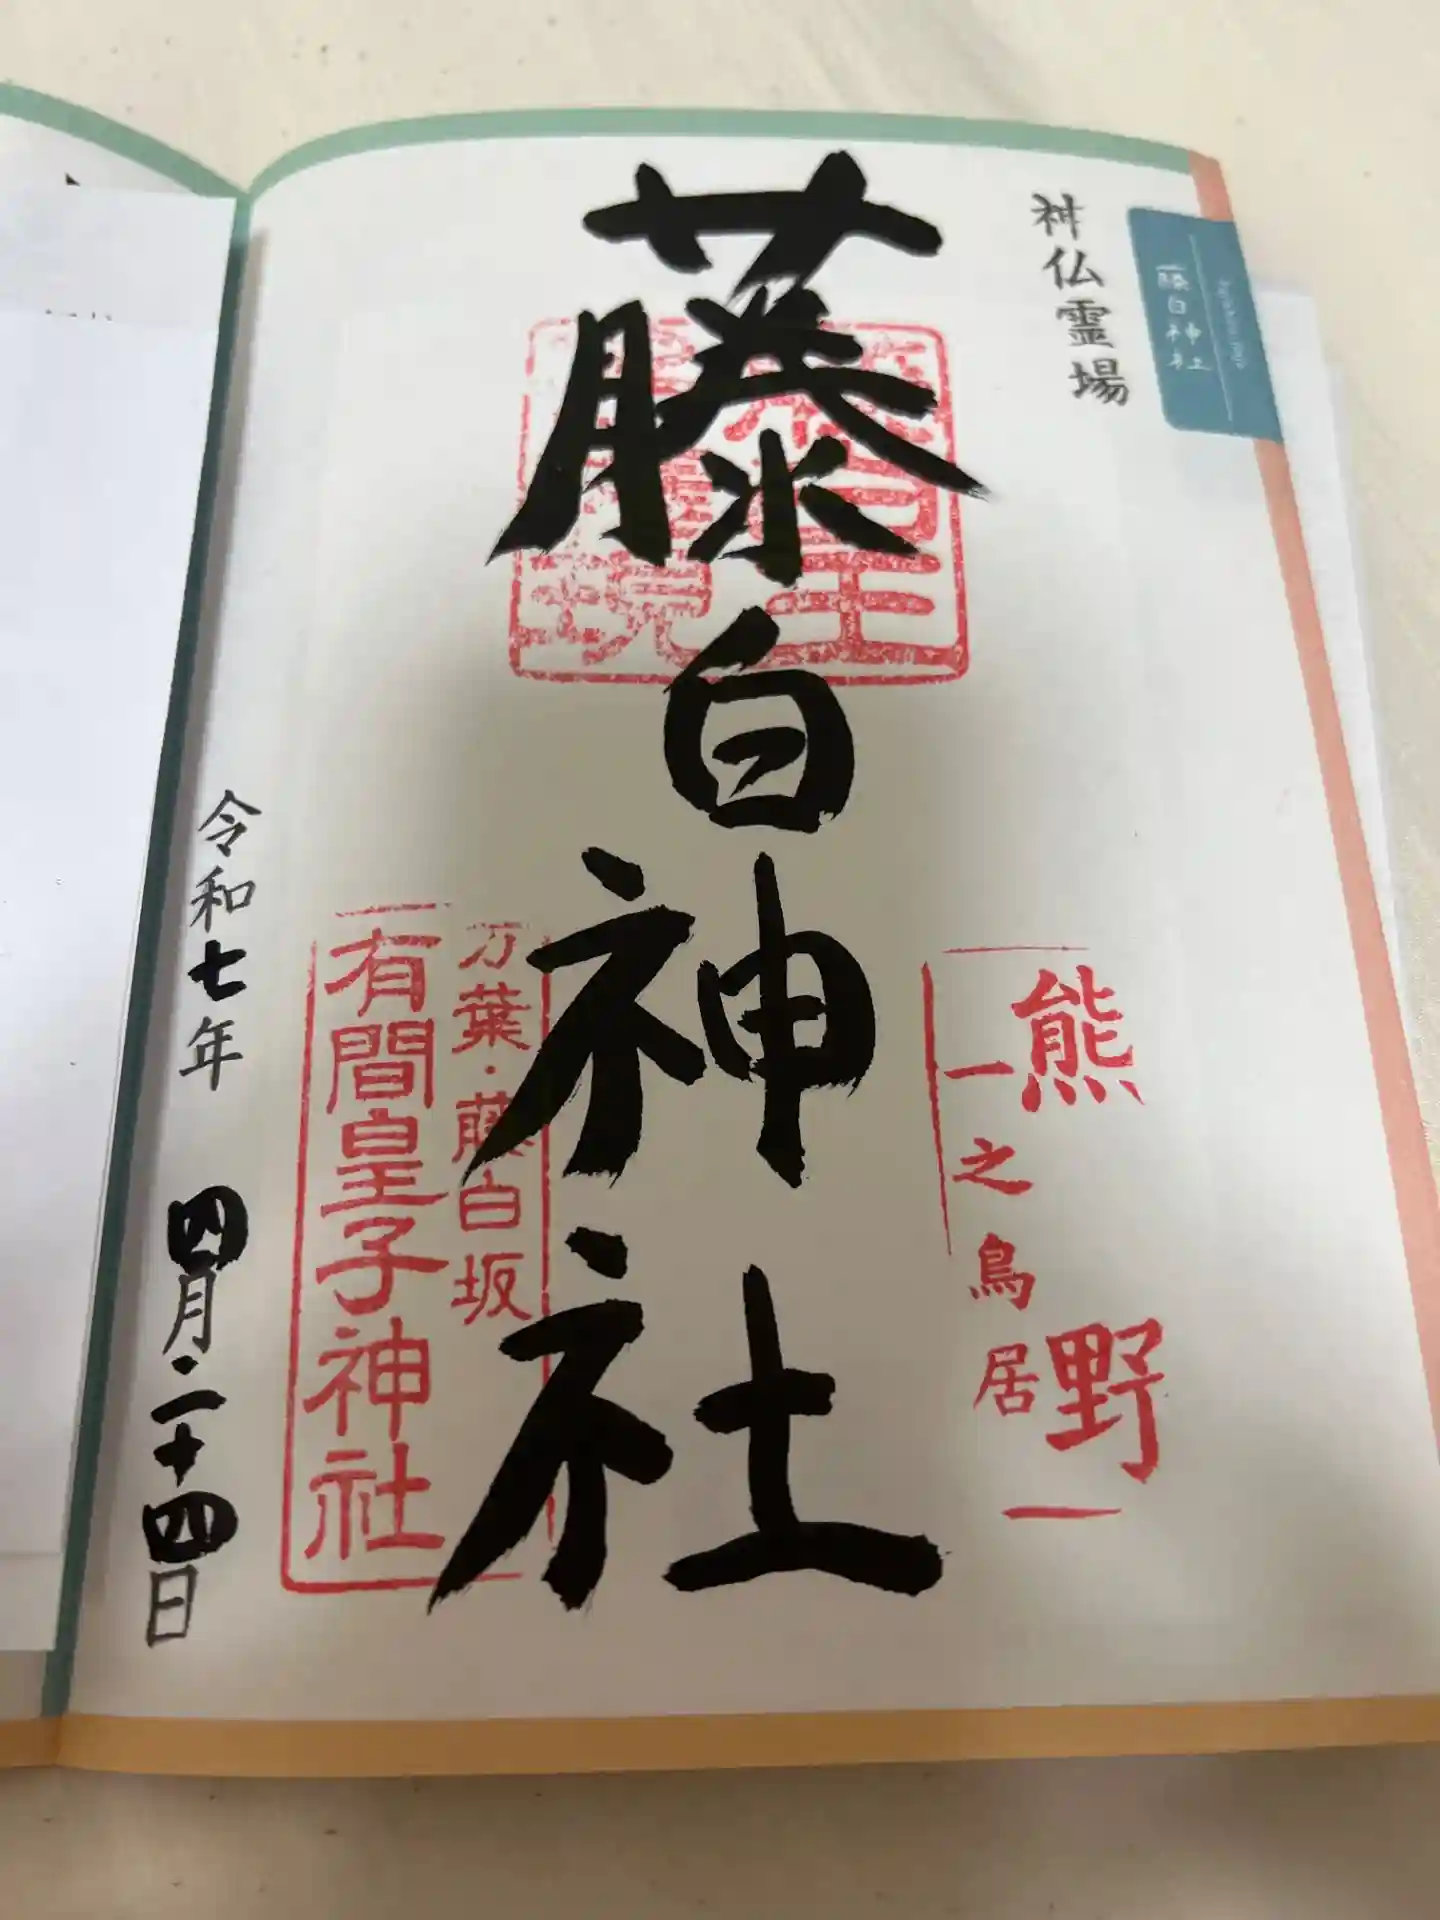 藤白神社
神仏霊場
藤白神社
熊野
一之鳥居
万葉・藤白坂
有間皇子神社
令和七年 四月二十四日